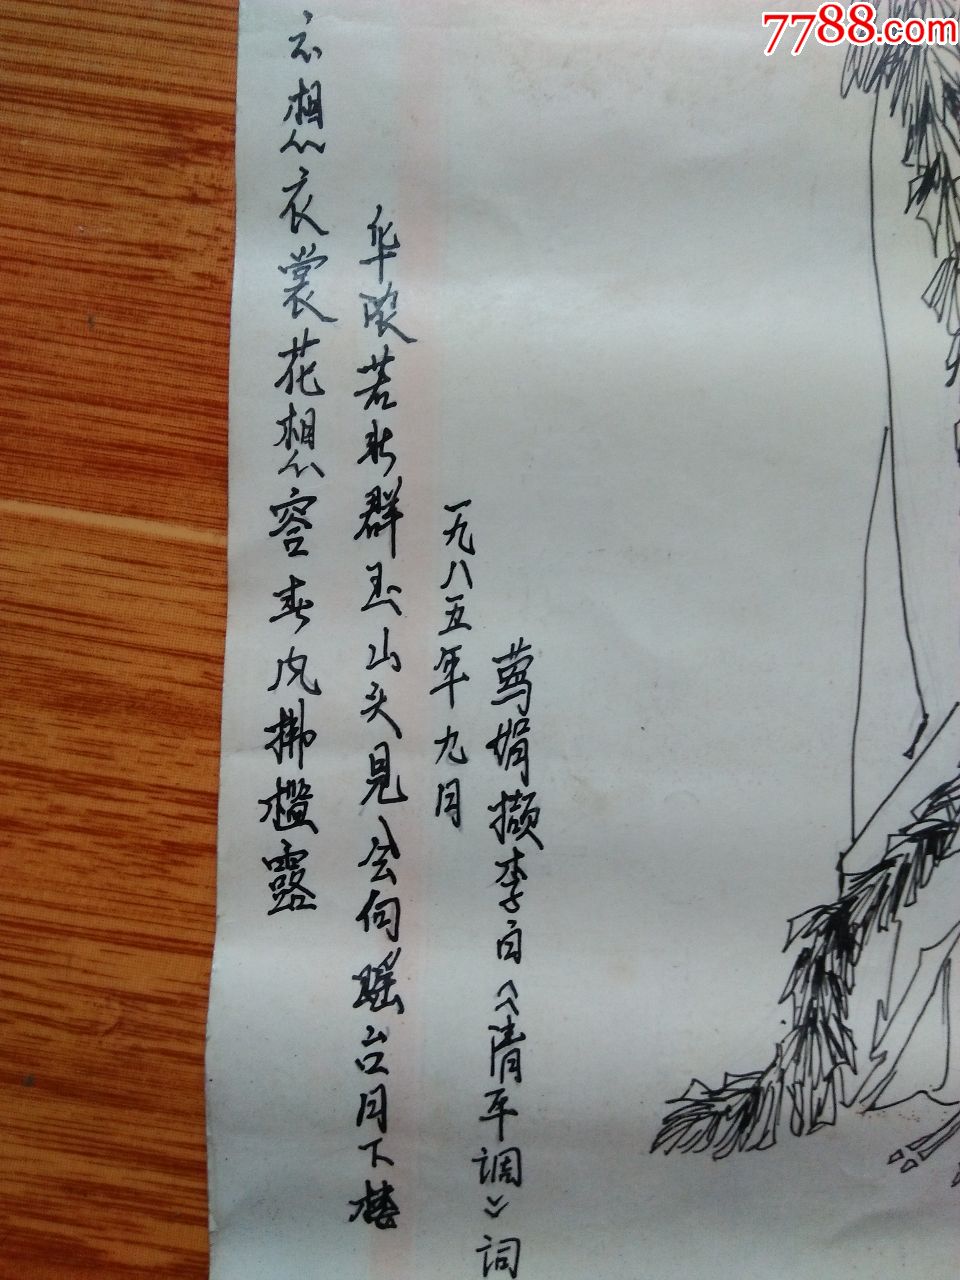 云想衣裳花想容春风拂槛露
华浓若非群玉山头见会向瑶台月下
一九八五年九月
莺娟撷李白《清平调》词
7788.com